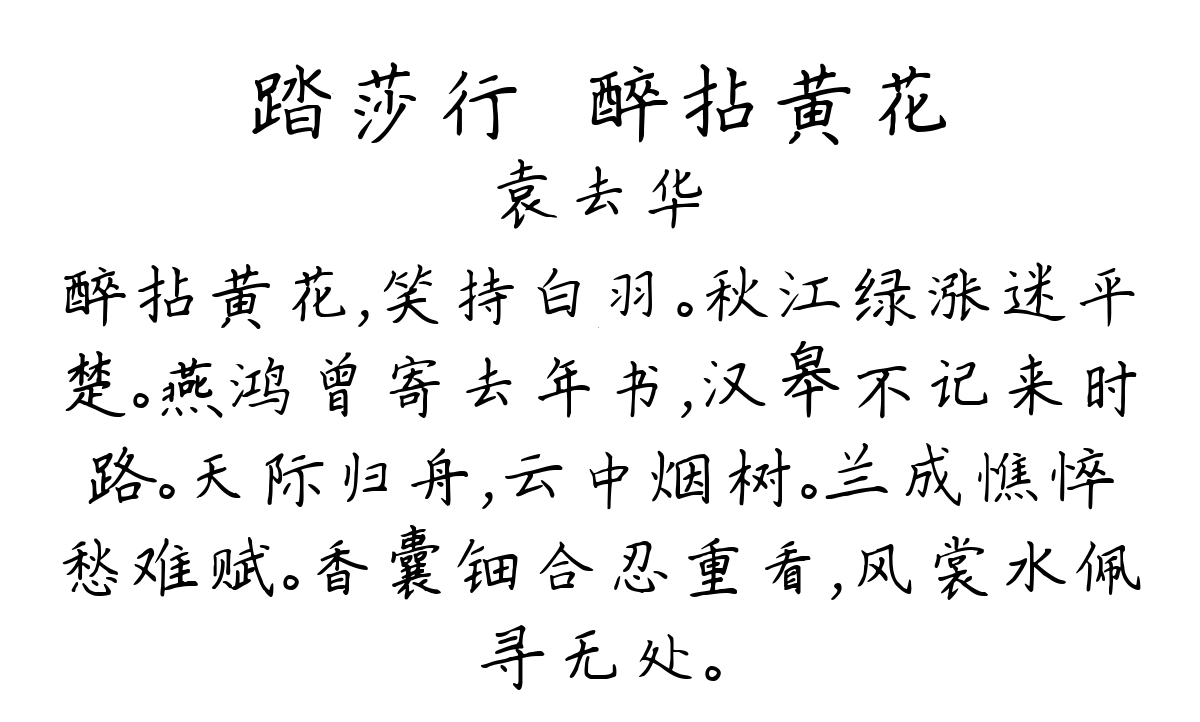 踏莎行 醉拈黄花
袁去华
醉拈黄花,笑持白羽。秋江绿涨迷平
楚。燕鸿曾寄去年书,汉皋不记来时
路。天际归舟,云中烟树。兰成憔悴
愁难赋。香囊钿合忍重看,风裳水佩
寻无处。